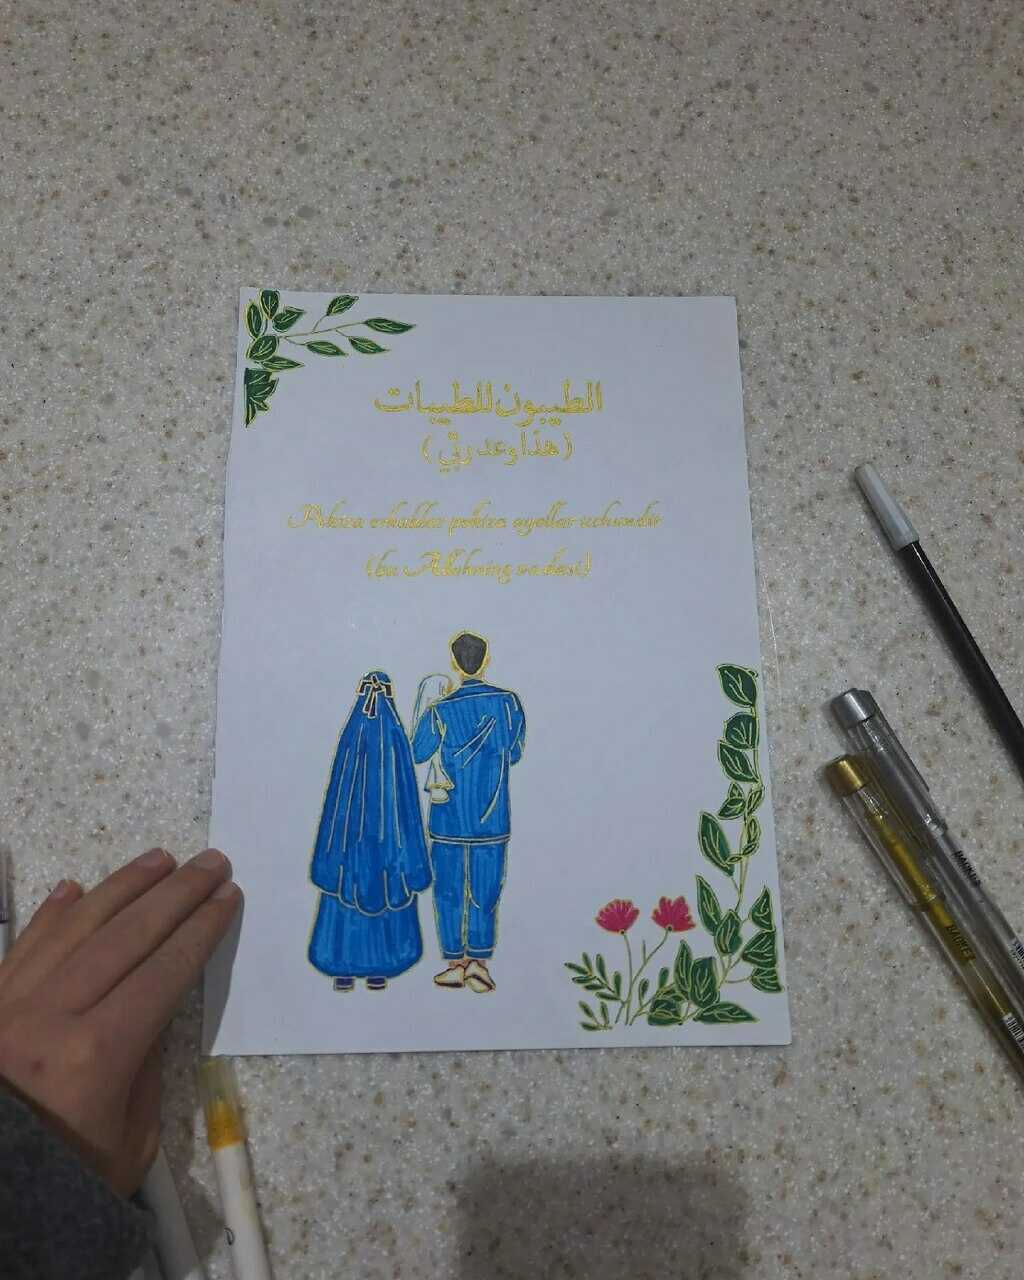 الطيبون للطيبات
(هذا وعد ربي)
Pokiza erkaklar pokiza ayollar uchundir
(bu Allohning va'dasi)